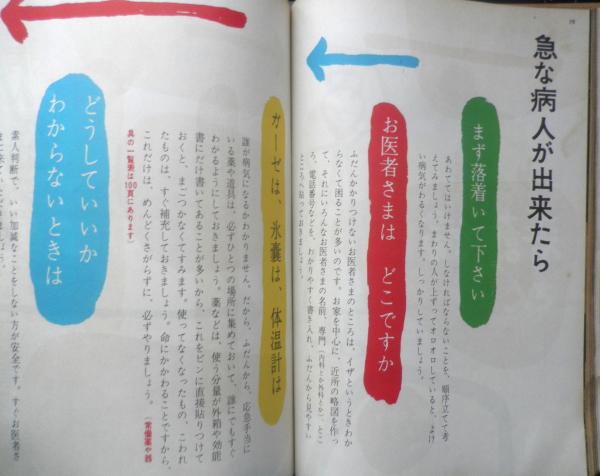 急な病人が出来たら
まず落着いて下さい
あわててはいけません。しなければならないことを、順序立てて考
えてみましょう。まわりの人が上ずってオロオロしていると、よけ
い病気がわるくなります。しっかりしていましょう。
お医者さまは どこですか
ふだんかかりつけないお医者さまのところは、イザというときわか
らなくて困ることが多いのです。お家を中心に、近所の略図を作っ
て、それにいろんなお医者さまの名前、専門(内科とか外科とか)、とこ
ろ、電話番号などを、わかりやすく書き入れ、ふだんから見やすい
ところへ貼っておきましょう。
ガーゼは、氷嚢は、体温計は
誰が病気になるかわかりません。だから、ふだんから、応急手当に
いる薬や道具は、必ずひとつの場所に集めておいて、誰にでもすぐ
わかるようにしておきましょう。薬などは、使う分量が外箱や効能
書にだけ書いてあることが多いから、これをビンに直接貼りつけて
おくと、まごつかなくてすみます。使ってなくなったもの、こわれ
たものは、すぐ補充しておきましょう。命にかかわることですから、
これだけは、めんどくさがらずに、必ずやりましょう。(常備薬や器
具の一覧表は100頁にあります)
どうしていいか
わからないときは
素人判断で、いい加減なことをしない方が安全です。すぐお医者さ